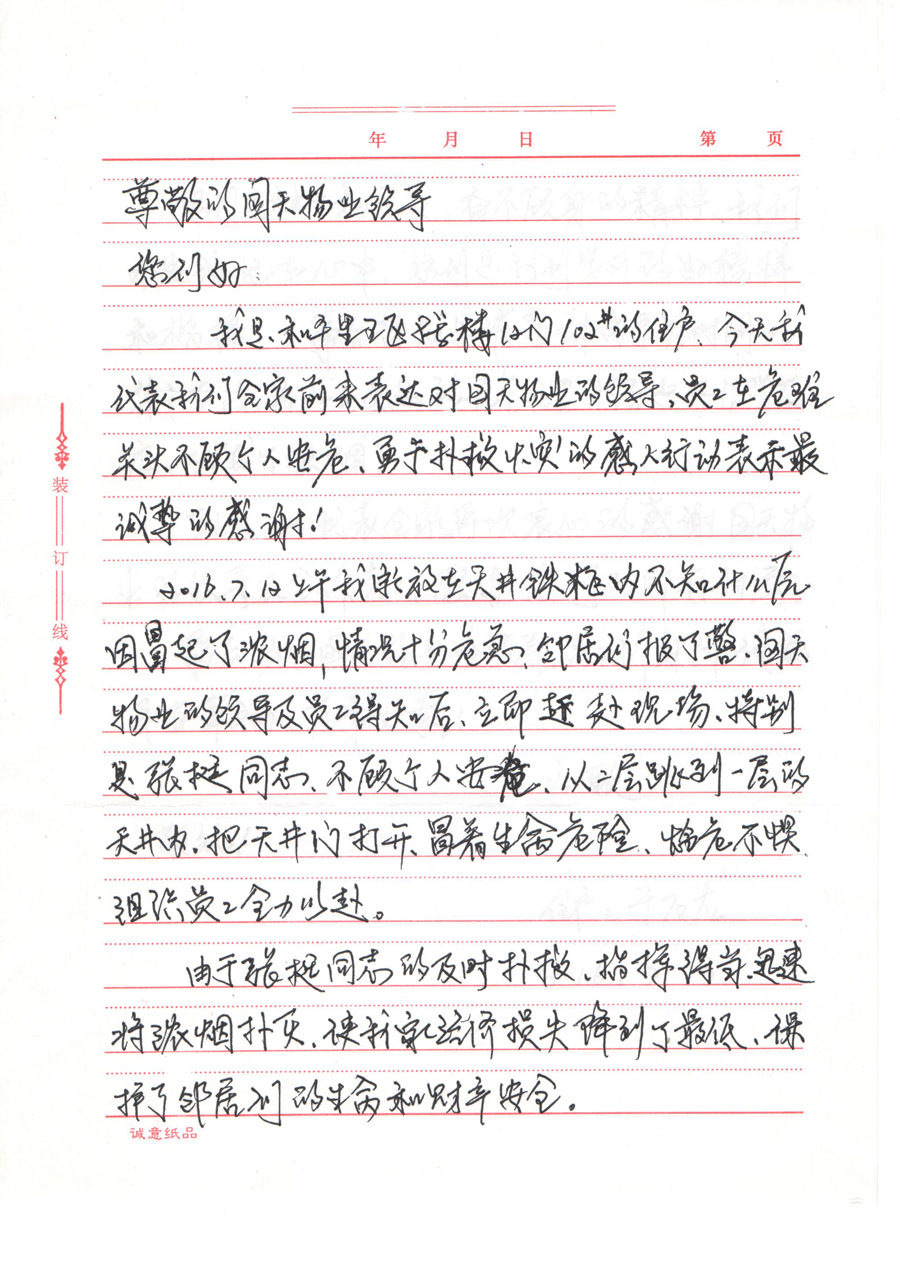 年 月 日 第 页
尊敬的国天物业领导
您们好:
我是和平里五区 楼12门102#的住户、今天我
代表我们全家前来表达对国天物业的领导、员工在危难
关头不顾个人安危、勇于扑救火灾的感人行动表示最
诚挚的感谢!
2016.7.12上午我家放在天井铁柜内不知什么原
因冒起了浓烟,情况十分危急、邻居们报了警、国天
物业的领导及员工得知后、立即赶赴现场、特别
是张挺同志、不顾个人安危、从二层跳到一层的
天井内、把天井门打开、冒着生命危险、临危不惧
组织员工全力以赴。
由于张挺同志的及时扑救、指挥得当、迅速
将浓烟扑灭、使我家经济损失降到了最低、保
护了邻居们的生命和财产安全。
装订线
诚意纸品